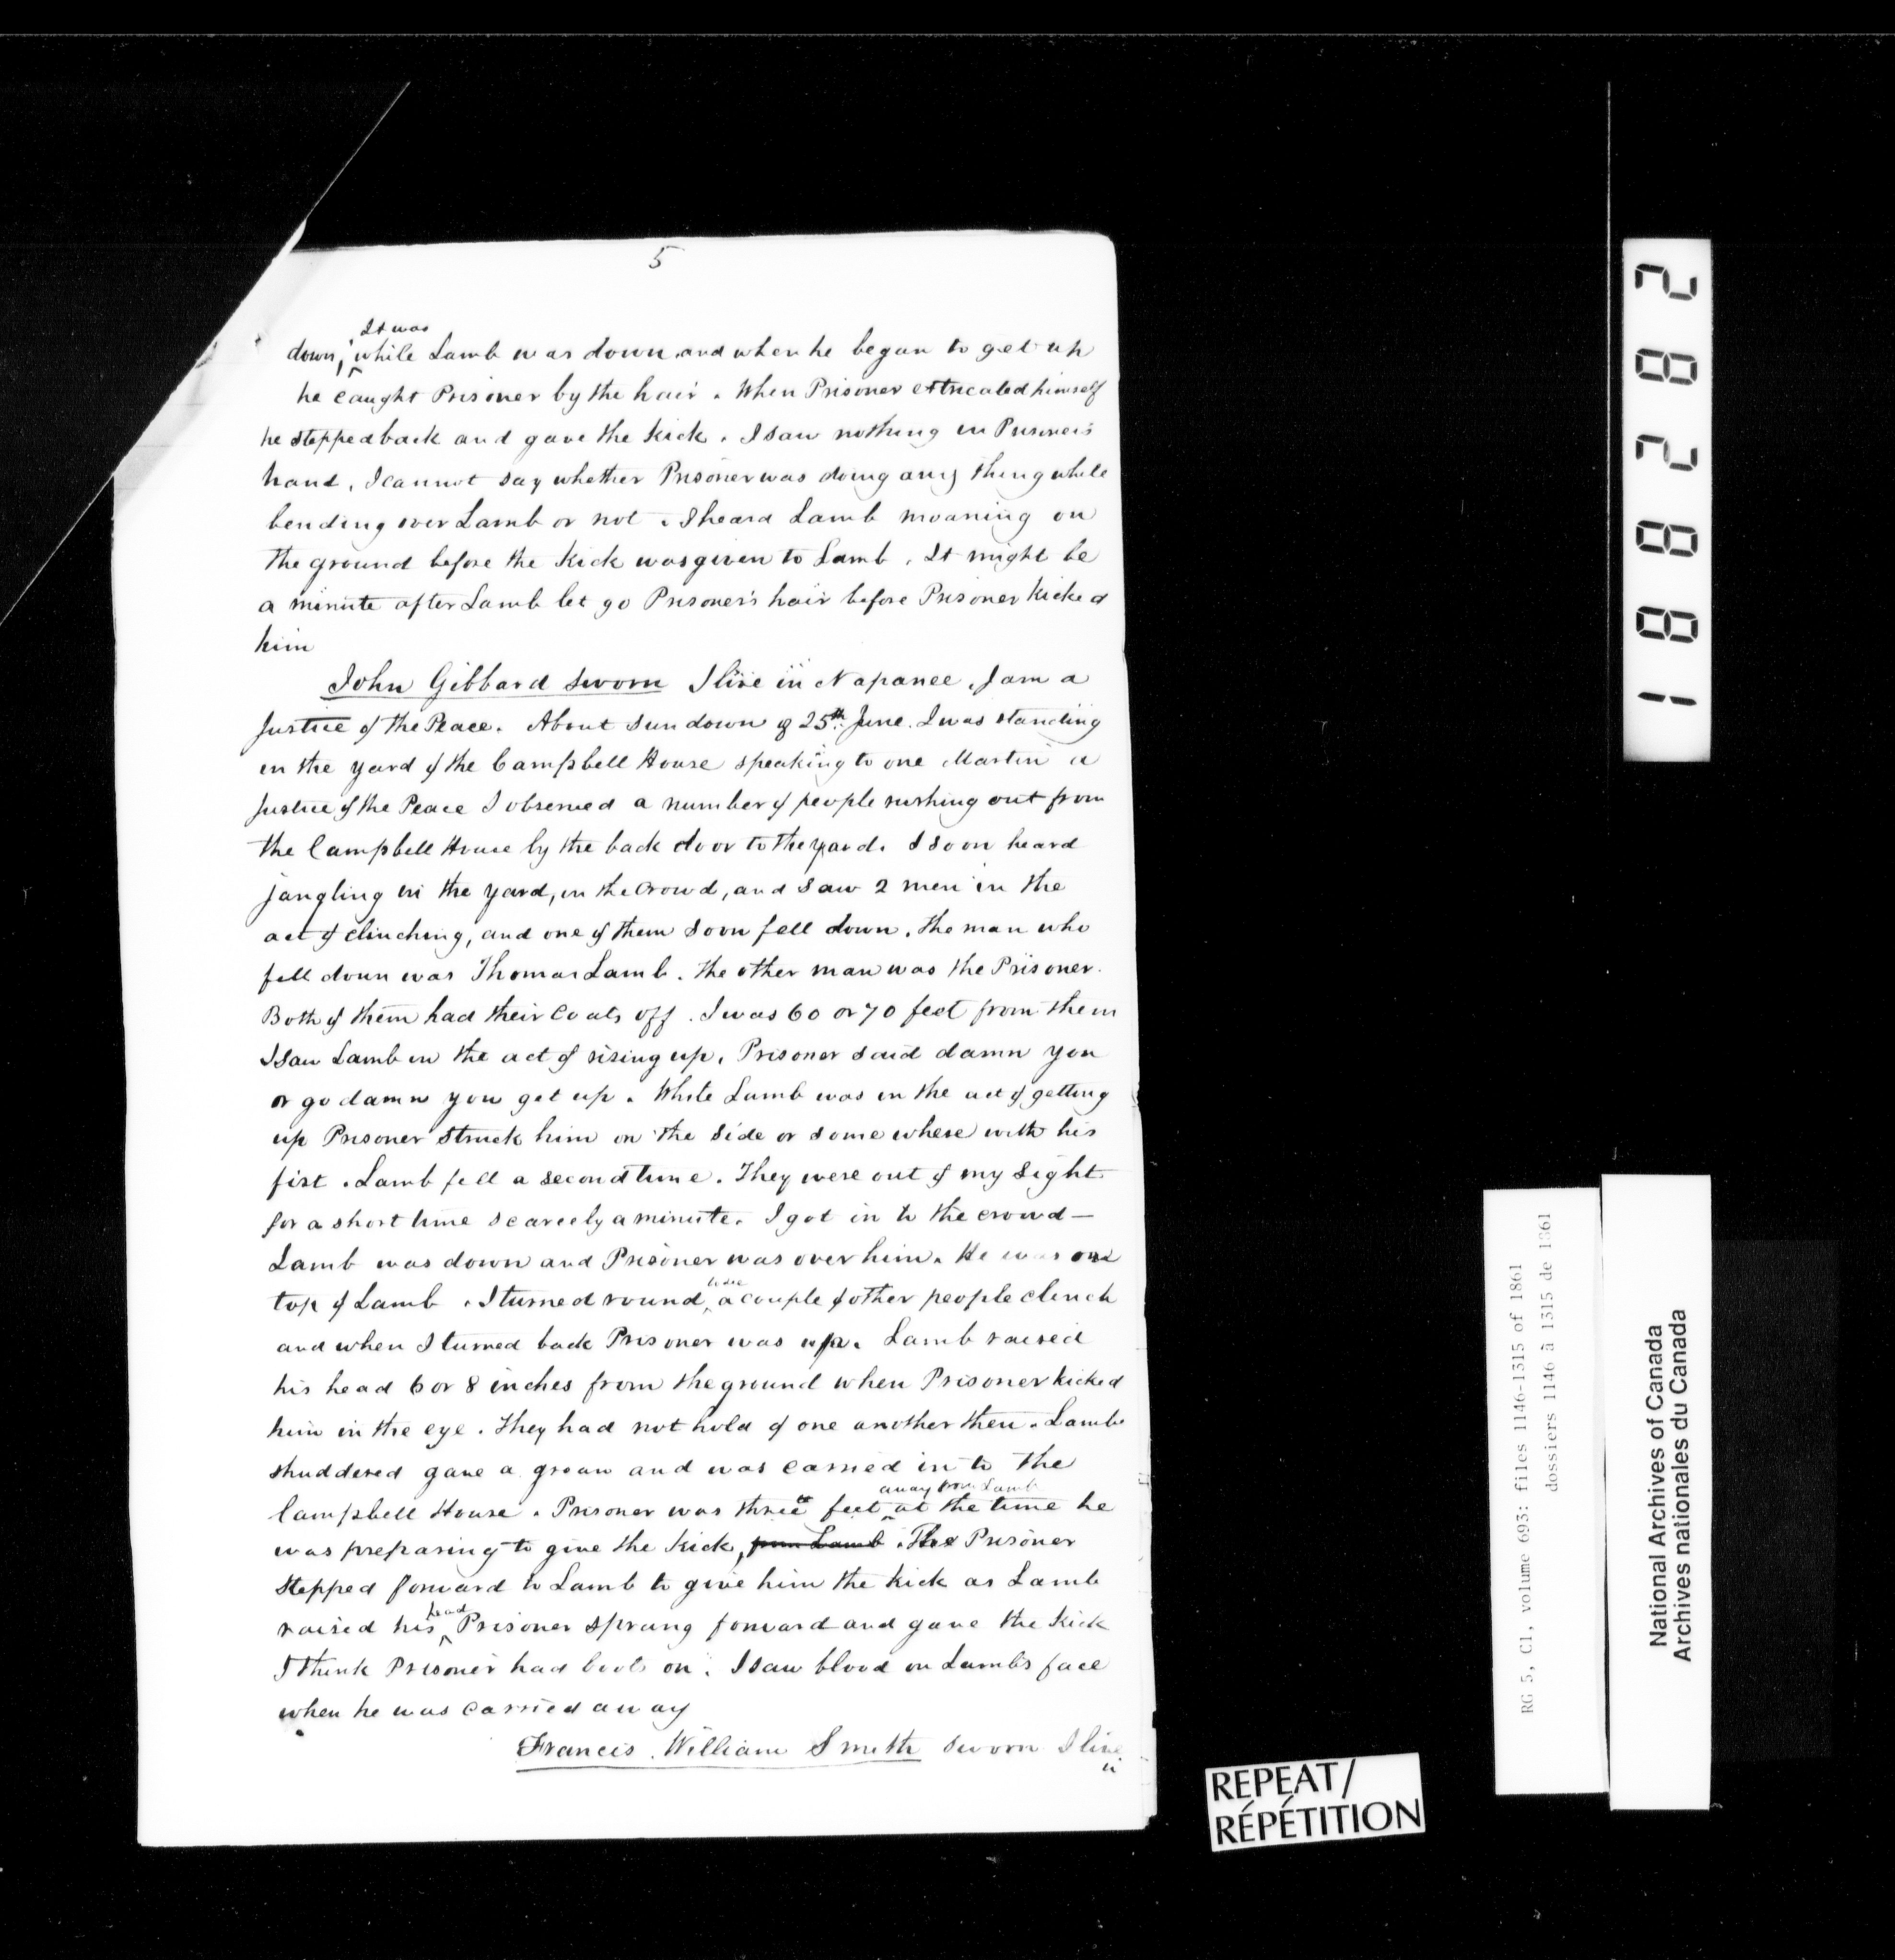 5
It was
down, while Lamb was down and when he began to get up
he caught Prisoner by the hair. When Prisoner extricated himself
he stepped back and gave the kick. I saw nothing in Prisoner's
hand, I cannot say whether Prisoner was doing any thing while
bending over Lamb or not. I heard Lamb moaning on
the ground before the kick was given to Lamb. It might be
a minute after Lamb let go Prisoner's hair before Prisoner kicked
him
John Gibbard sworn I live in Napanee. I am a
Justice of the Peace. About sun down of 25th June. I was standing
in the yard of the Campbell House speaking to one Martin a
Justice of the Peace I observed a number of people rushing out from
the Campbell House by the back door to the yard. I soon heard
jangling in the yard, in the Crowd, and saw 2 men in the
act of clinching, and one of them soon fell down. the man who
fell down was Thomas Lamb. the other man was the Prisoner.
Both of them had their Coats off. I was 60 or 70 feet from them
I saw Lamb in the act of rising up. Prisoner said damn you
or go damn you get up. While Lamb was in the act of getting
up Prisoner struck him on the side or some where with his
fist. Lamb fell a second time. They were out of my sight
for a short time scarcely a minute. I got in to the crowd—
Lamb was down and Prisoner was over him. He was on
top of Lamb. I turned round, a couple of other people clinch
and when I turned back Prisoner was up. Lamb raised
his head 6 or 8 inches from the ground when Prisoner kicked
him in the eye. They had not hold of one another then. Lamb
shuddered gave a groan and was carried in to the
away from Lamb
Campbell House. Prisoner was three feet at the time he
was preparing to give the kick, from Lamb. The Prisoner
stepped forward to Lamb to give him the kick as Lamb
head
raised his Prisoner sprang forward and gave the kick
I think Prisoner had boots on. I saw blood on Lamb's face
when he was carried away
Francis William Smith sworn I live
in
REPEAT/
RÉPÉTITION
RG 5, C1, volume 693: files 1146-1315 of 1861
dossiers 1146 à 1315 de 1861
National Archives of Canada
Archives nationales du Canada
188282